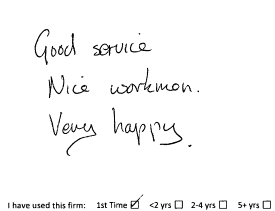 Good service
Nice workmen.
Very happy.
I have used this firm: 1st Time ☑ <2 yrs ☐ 2-4 yrs ☐ 5+ yrs ☐